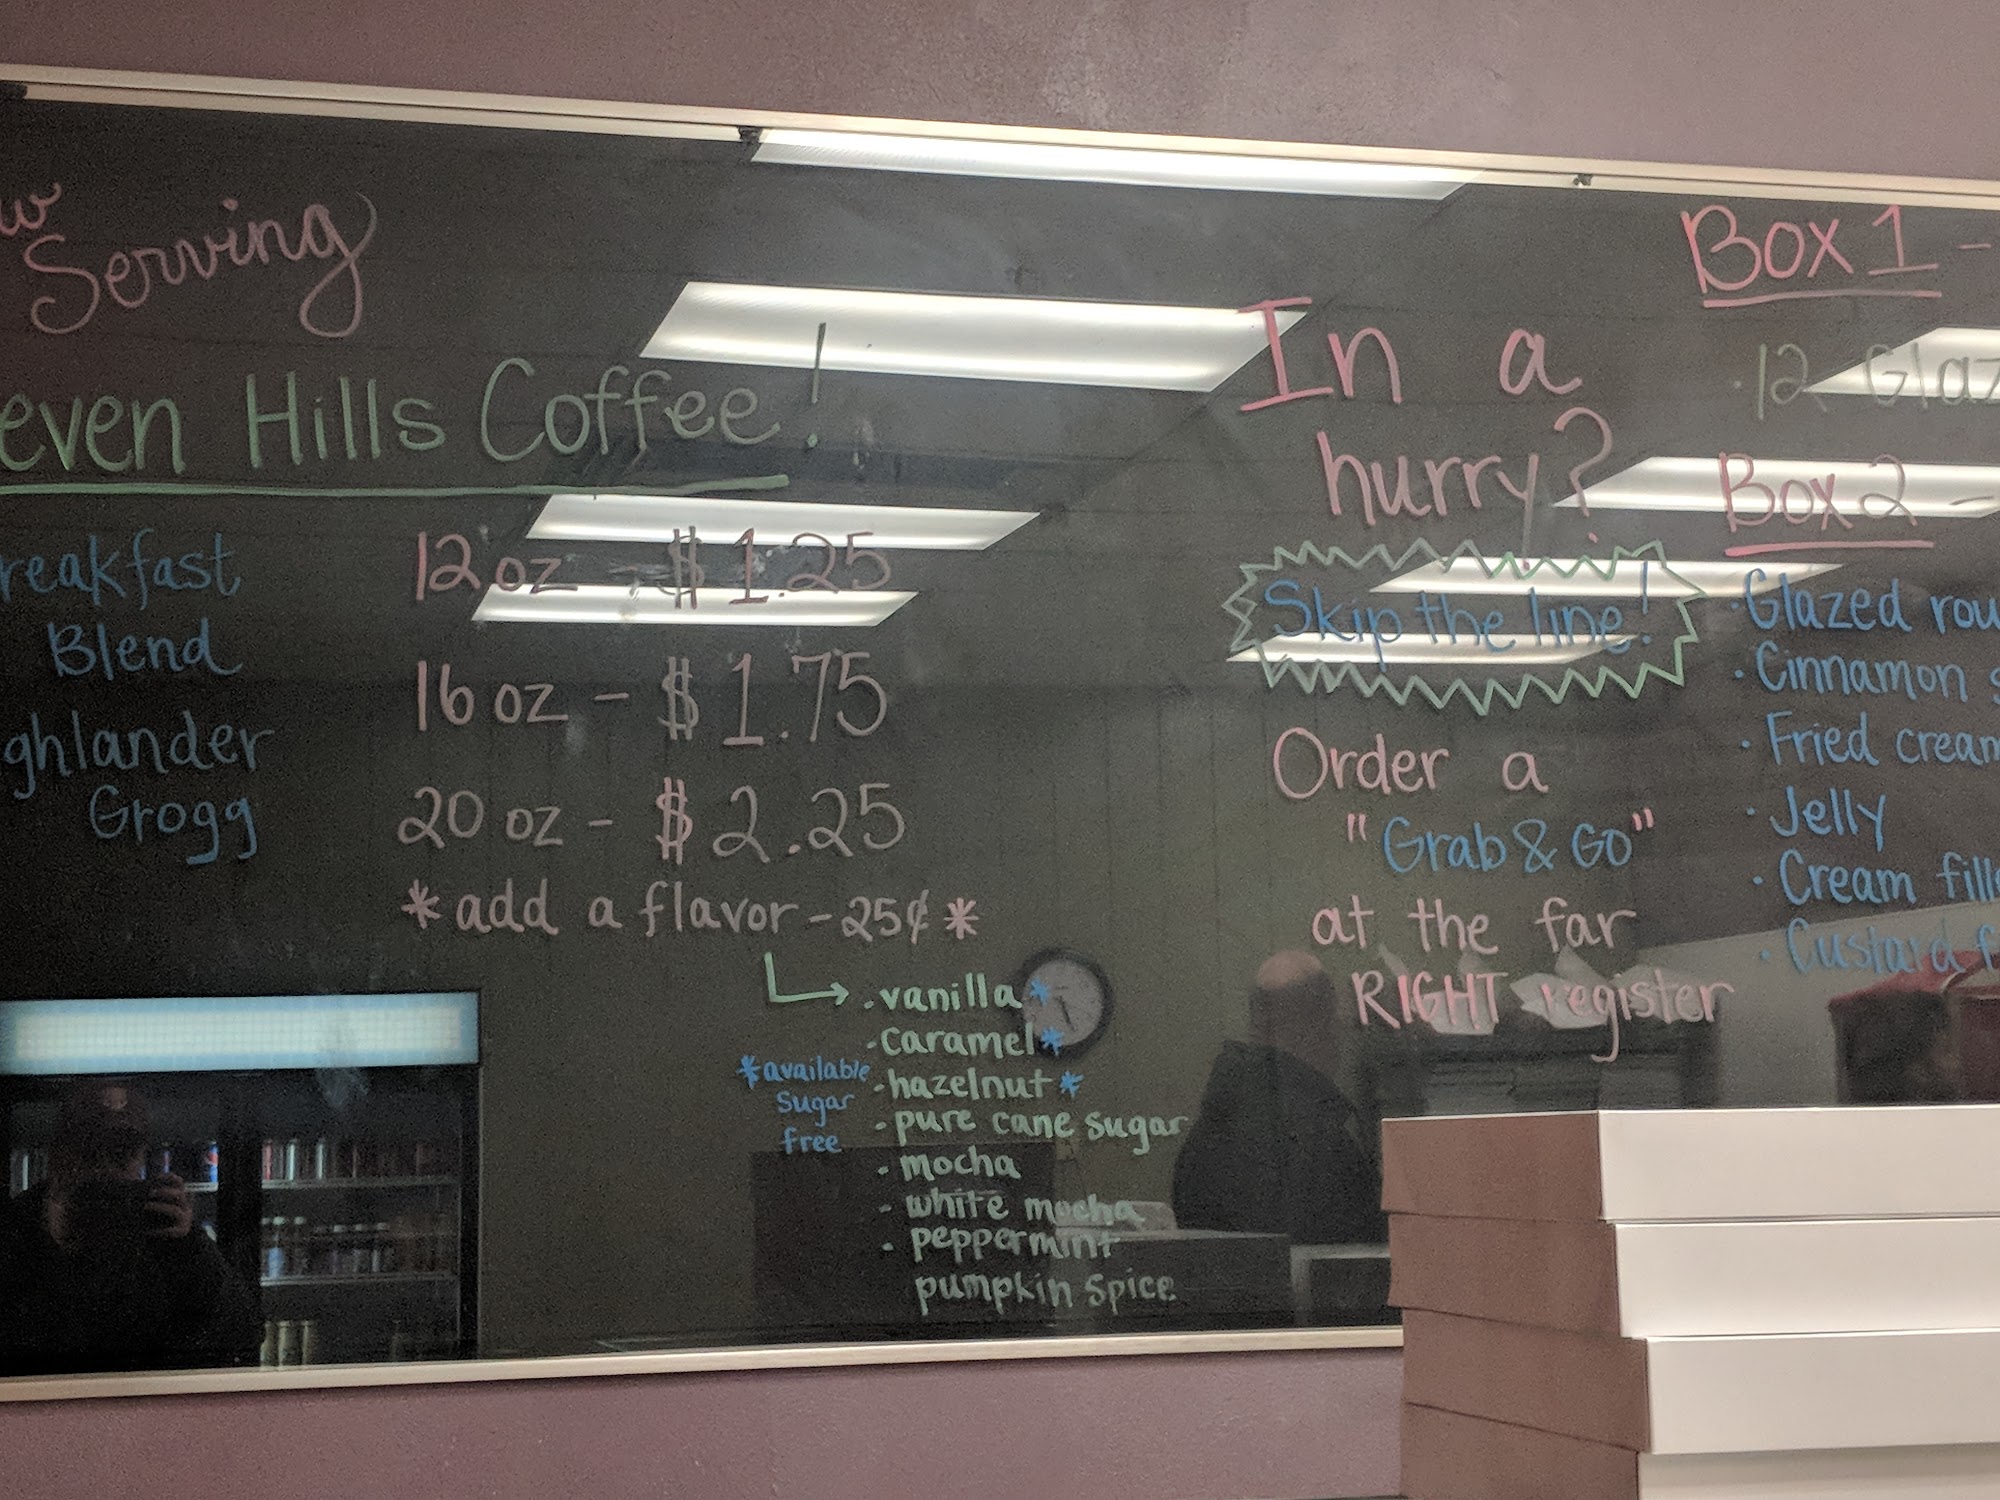 w
Serving
even Hills Coffee!
reakfast
Blend
ghlander
Grogg
12 oz - $1.25
16 oz - $1.75
20 oz - $2.25
*add a flavor - 25¢*
. vanilla*
. caramel*
. hazelnut*
. pure cane sugar
. mocha
. white mocha
. peppermint
pumpkin spice
*available
sugar
free
In a
hurry?
Skip the line!
Order a
"Grab & Go"
at the far
RIGHT register
Box 1 -
. 12 Glaz
Box 2 -
. Glazed rou
. Cinnamon s
. Fried cream
. Jelly
. Cream fill
. Custard f